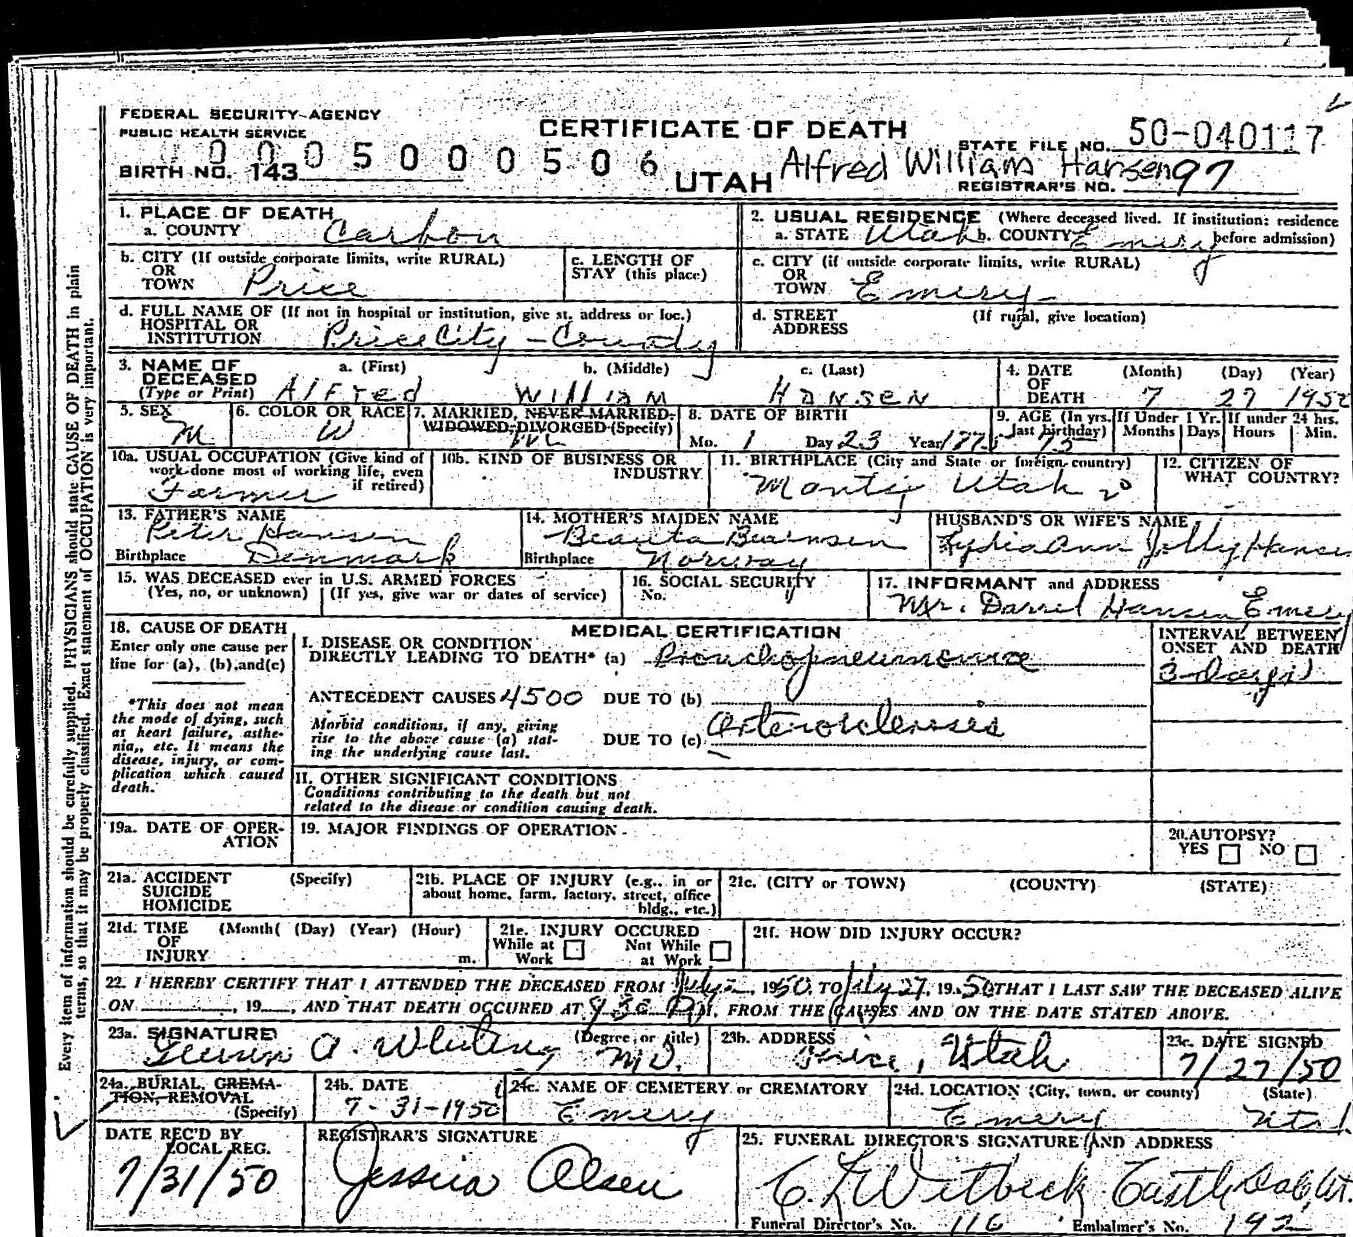 FEDERAL SECURITY AGENCY
PUBLIC HEALTH SERVICE
CERTIFICATE OF DEATH
STATE FILE NO. 50-040117
0005000506
BIRTH NO. 143
UTAH
Alfred William Hansen
REGISTRAR'S NO. 97
1. PLACE OF DEATH
a. COUNTY Carbon
2. USUAL RESIDENCE (Where deceased lived. If institution: residence before admission)
a. STATE Utah b. COUNTY Emery
b. CITY (If outside corporate limits, write RURAL) OR TOWN Price
c. LENGTH OF STAY (this place)
c. CITY (if outside corporate limits, write RURAL) OR TOWN Emery
d. FULL NAME OF (If not in hospital or institution, give st. address or loc.) HOSPITAL OR INSTITUTION Price City - County
d. STREET ADDRESS (If rural, give location)
3. NAME OF DECEASED (Type or Print)
a. (First) Alfred
b. (Middle) William
c. (Last) Hansen
4. DATE OF DEATH (Month) (Day) (Year)
7 27 1950
5. SEX M
6. COLOR OR RACE W
7. MARRIED, NEVER MARRIED, WIDOWED, DIVORCED (Specify) M
8. DATE OF BIRTH
Mo. 1 Day 23 Year 1875
9. AGE (In yrs. last birthday) 75
If Under 1 Yr. Months Days
If under 24 hrs. Hours Min.
10a. USUAL OCCUPATION (Give kind of work done most of working life, even if retired) Farmer
10b. KIND OF BUSINESS OR INDUSTRY
11. BIRTHPLACE (City and State or foreign country)
Manti, Utah
12. CITIZEN OF WHAT COUNTRY?
13. FATHER'S NAME
Peter Hansen
Birthplace Denmark
14. MOTHER'S MAIDEN NAME
Birthplace Norway
HUSBAND'S OR WIFE'S NAME
Lydia Ann Jolly Hansen
15. WAS DECEASED ever in U.S. ARMED FORCES
(Yes, no, or unknown) (If yes, give war or dates of service)
16. SOCIAL SECURITY No.
17. INFORMANT and ADDRESS
Mr. Darrel Hansen Emery
18. CAUSE OF DEATH
Enter only one cause per line for (a), (b), and (c)
*This does not mean the mode of dying, such as heart failure, asthenia, etc. It means the disease, injury, or complication which caused death.
MEDICAL CERTIFICATION
I. DISEASE OR CONDITION DIRECTLY LEADING TO DEATH* (a) Bronchopneumonia
INTERVAL BETWEEN ONSET AND DEATH
3 days
ANTECEDENT CAUSES 4500 DUE TO (b)
Morbid conditions, if any, giving rise to the above cause (a) stating the underlying cause last.
DUE TO (c) Arterosclerosis
II. OTHER SIGNIFICANT CONDITIONS
Conditions contributing to the death but not related to the disease or condition causing death.
19a. DATE OF OPERATION
19. MAJOR FINDINGS OF OPERATION
20. AUTOPSY?
YES NO
21a. ACCIDENT SUICIDE HOMICIDE (Specify)
21b. PLACE OF INJURY (e.g., in or about home, farm, factory, street, office bldg., etc.)
21c. (CITY or TOWN) (COUNTY) (STATE)
21d. TIME OF INJURY (Month( (Day) (Year) (Hour) m.
21e. INJURY OCCURED
While at Work Not While at Work
21f. HOW DID INJURY OCCUR?
22. I HEREBY CERTIFY THAT I ATTENDED THE DECEASED FROM July 2, 1950, TO July 27, 1950 THAT I LAST SAW THE DECEASED ALIVE
ON , 19 , AND THAT DEATH OCCURED AT 9 30 P M, FROM THE CAUSES AND ON THE DATE STATED ABOVE.
23a. SIGNATURE (Degree or title)
A. Whiting M.D.
23b. ADDRESS
Price, Utah
23c. DATE SIGNED
7/27/50
24a. BURIAL, CREMATION, REMOVAL (Specify)
24b. DATE
7-31-1950
24c. NAME OF CEMETERY or CREMATORY
Emery
24d. LOCATION (City, town, or county) (State)
Emery Utah
DATE REC'D BY LOCAL REG.
7/31/50
REGISTRAR'S SIGNATURE
Jessica Olsen
25. FUNERAL DIRECTOR'S SIGNATURE AND ADDRESS
C. L. Witbeck Castle Dale, Ut.
Funeral Director's No. 116 Embalmer's No. 192
Every item of information should be carefully supplied. PHYSICIANS should state CAUSE OF DEATH in plain
terms, so that it may be properly classified. Exact statement of OCCUPATION is very important.